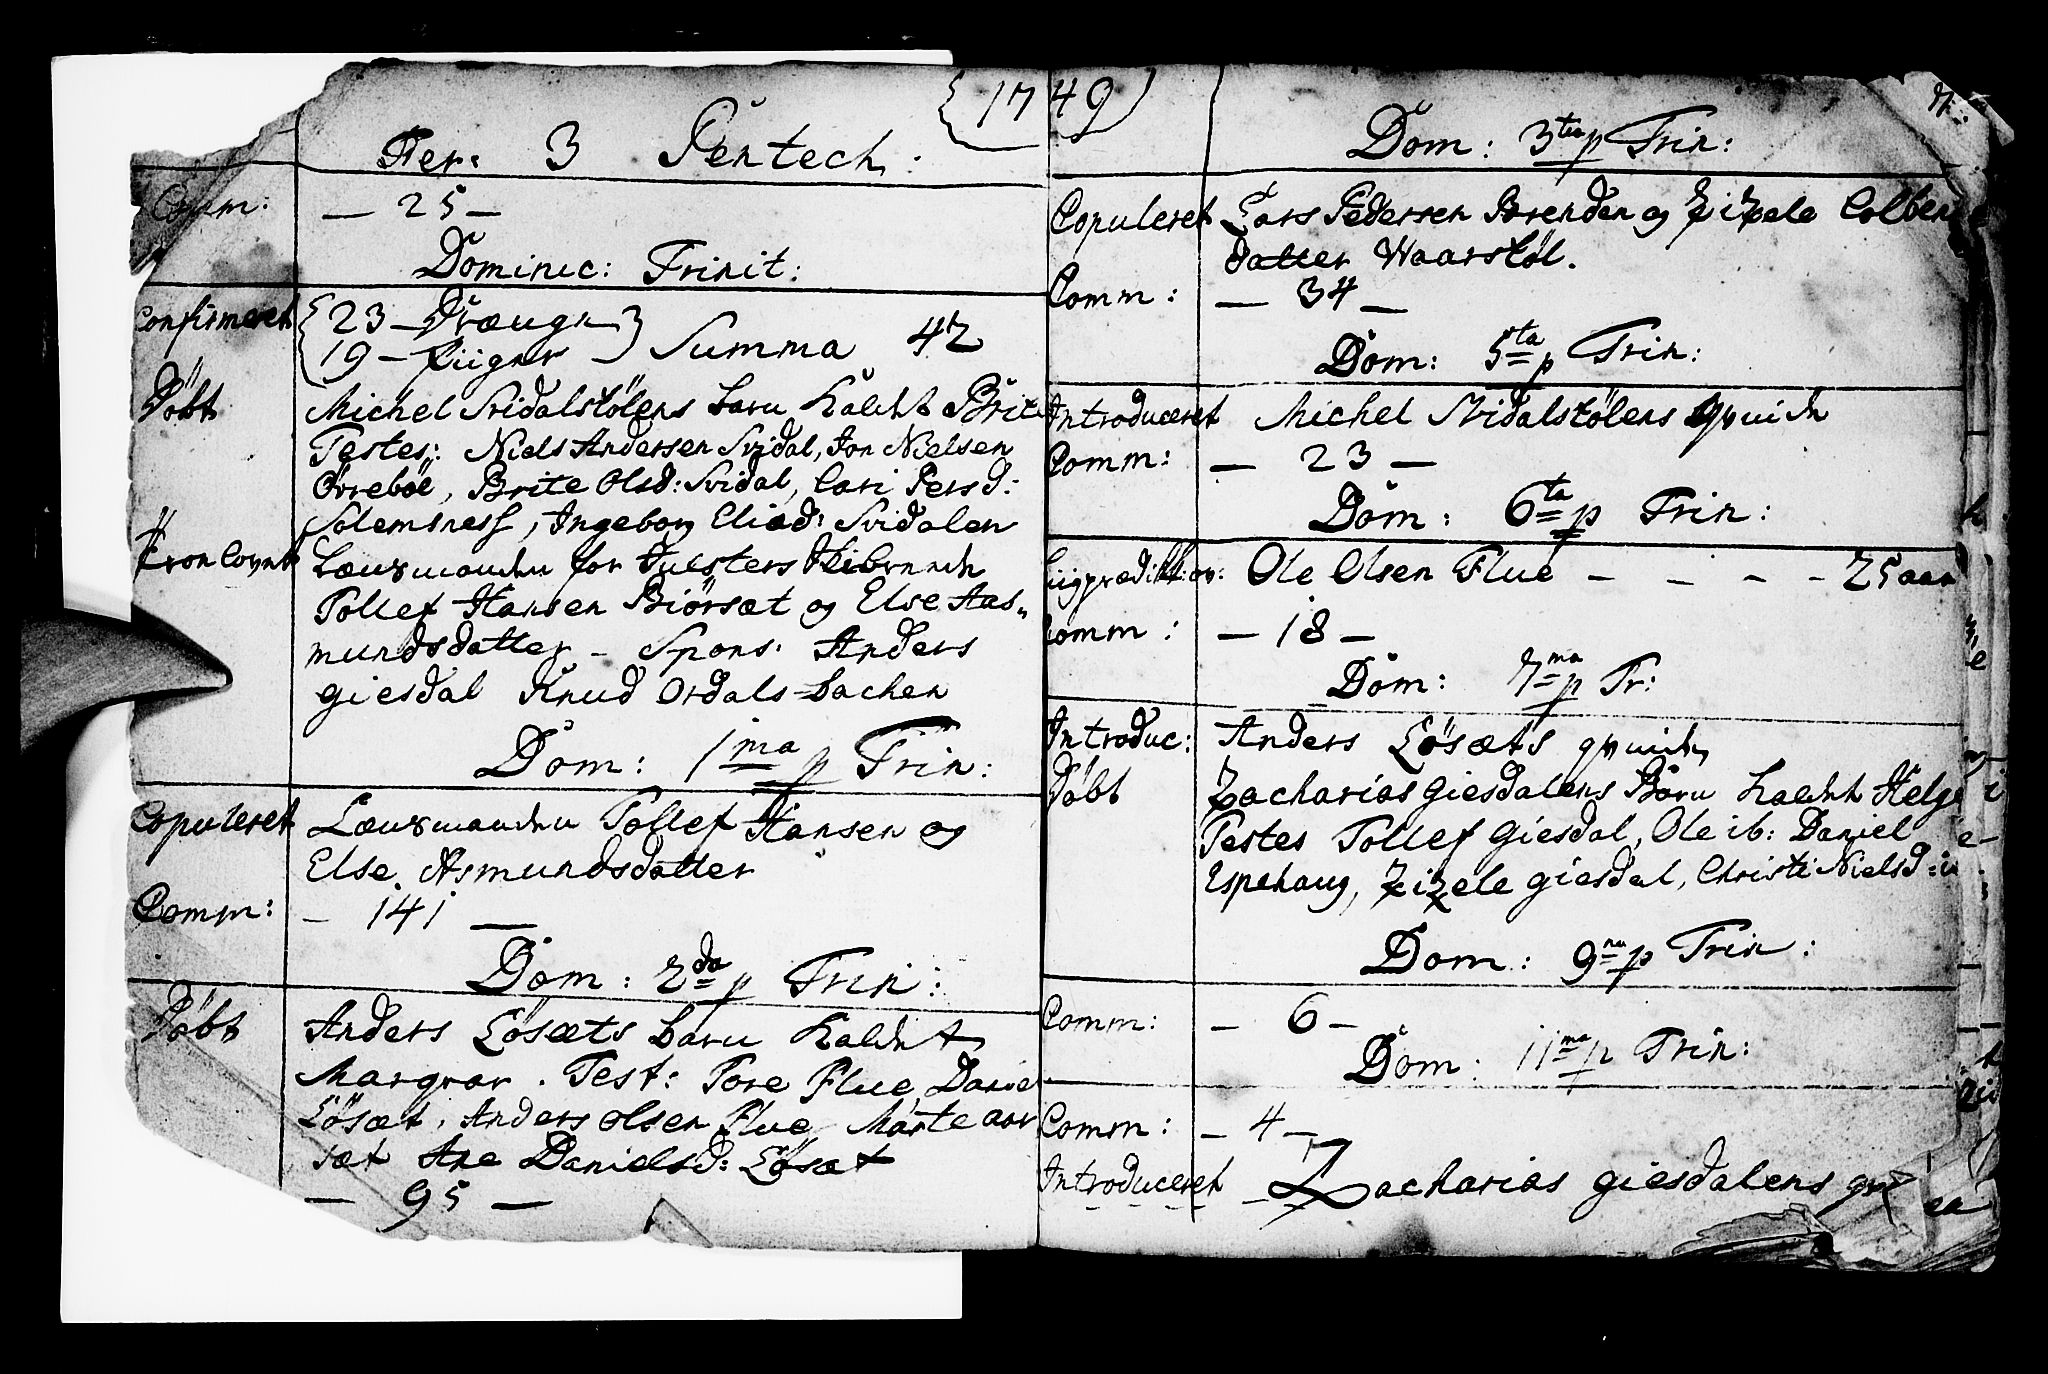 {1749)
Fer: 3 Pentech:
Comm: — 25 —
Dominic: Trinit:
Confirmeret {23 — Drænge }
{19 — Piiger — } Summa 42
Döbt Michel Svidalstölens barn kaldet Brite
Testes: Niels Andersen Svidal, Jon Nielsen
Övreböe, Brite Olsd: Svidal, Cari Persd:
Solemsness, Ingeborg Eliæd: Svidalen
Trolovet Lænsmanden for Justers Skibrede
Tollef Hansen Biörsæt og Else Aas„
mundsdatter – Spons: Anders
Giesdal Knud Ordals-bachen
Dom: 1ma p Trin:
Copuleret Lænsmanden Tollef Hansen og
Else Asmundsdatter
Comm: — 141 —
Dom: 2da p Trin:
Döbt Anders Lösæts barn kaldet
Margrar. Test: Tore Flue, Daniel
Lösæt, Anders Olsen Flue, Marte aar
sæt Ane Danielsd: Lösæt
— 95 —
Dom: 3tia p Trin:
Copuleret Lars Pedersen Brenden og Zizele Colben
datter Waarstöl.
Comm: — 34 —
Dom: 5ta p Trin:
Introduceret Michel Svidalstölens qvinde
Comm: — 23 —
Dom: 6ta p Trin:
Ole Olsen Flue — — — — 25 aar
Comm: — 18 —
Dom: 7ma p Tr:
Introduc: Anders Lösæts qvinde
Döbt Zacharias Giesdalens Barn kaldet Helge
Testes Tollef Giesdal, Ole ib: Daniel
Espehaug, Zizele Giesdal, Christi Nielsd:
Dom: 9na p Trin:
Comm: — 6 —
Dom: 11ma p Trin:
Comm: — 4 —
Introduceret — Zacharias Giesdalens